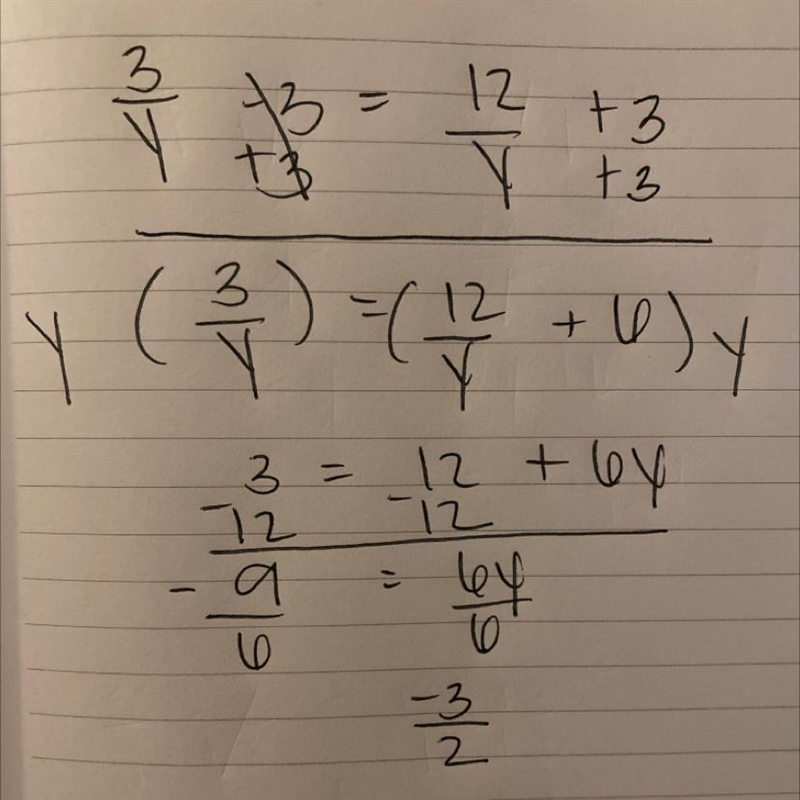 3/y -3 = 12/y +3
+3 +3
y (3/y) = (12/y + 6) y
3 = 12 + 6y
-12 -12
-9/6 = 6y/6
-3/2